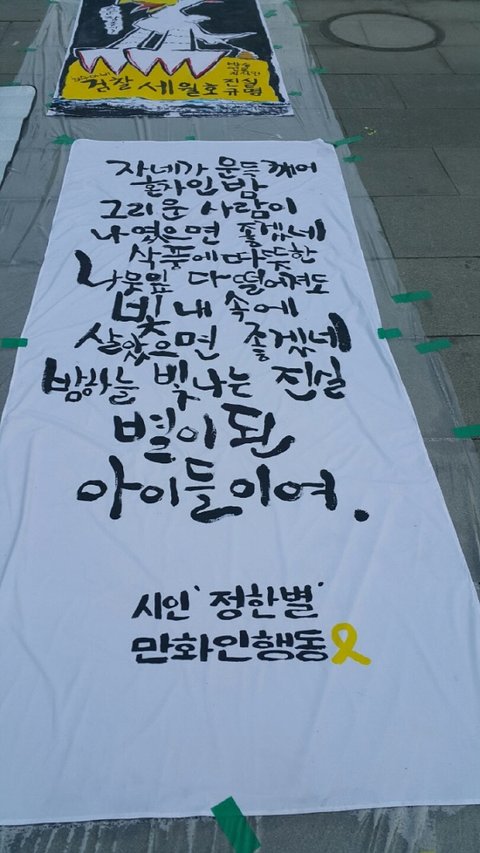 검찰 세월호 진실
규명
자네가 문득 깨어
혼자인 밤
그리운 사람이
나였으면 좋겠네
삭풍에 따뜻한
나뭇잎 다 떨어져도
빛 내 속에
살았으면 좋겠네
밤하늘 빛나는 진실
별이 된
아이들이여.
시인 '정한별'
만화인행동